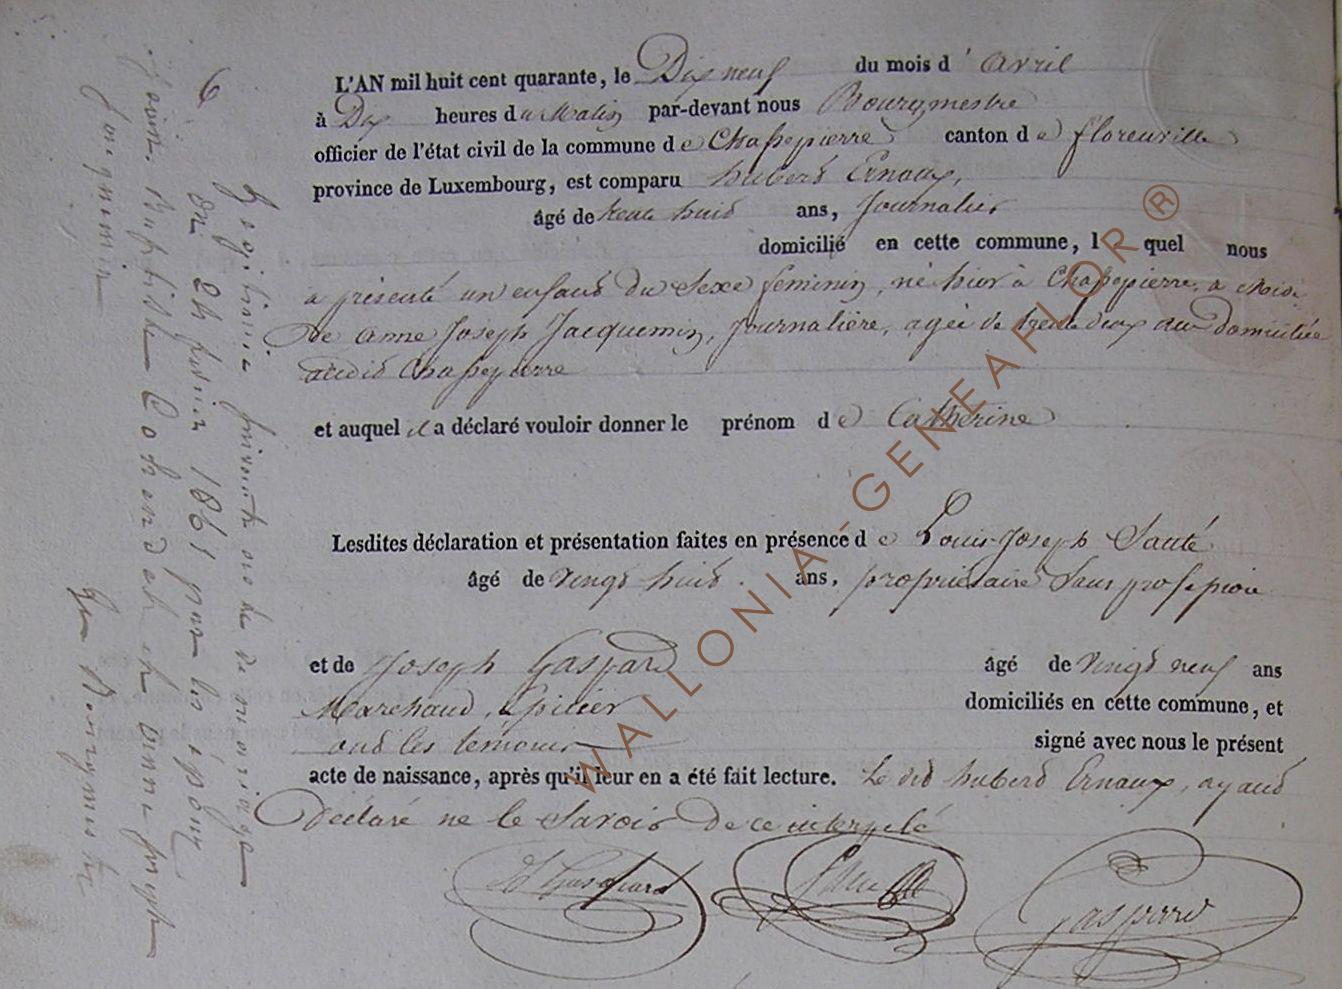 6
Légitimée suivant acte de mariage
du 24 février 1861 par les époux
Jean Baptiste et anne joseph
Jacquemin
Le Bourgmestre
L'AN mil huit cent quarante, le Dix neuf du mois d'avril
à Dix heures du Matin par-devant nous Bourgmestre
officier de l'état civil de la commune de Chassepierre canton de florenville
province de Luxembourg, est comparu hubert Ernoux,
âgé de trente huit ans, Journalier
domicilié en cette commune, lequel nous
a présenté un enfant du Sexe féminin, né hier à Chassepierre, à
de anne Joseph Jacquemin, Journalière, agée de trente deux ans Domiciliée
audit Chassepierre
et auquel il a déclaré vouloir donner le prénom de Catherine
Lesdites déclaration et présentation faites en présence de Louis-Joseph Santé
âgé de vingt huit ans, propriétaire Sans profession
et de Joseph Gaspard âgé de vingt neuf ans
Marchand, Epicier domiciliés en cette commune, et
ont les temoins signé avec nous le présent
acte de naissance, après qu'il leur en a été fait lecture. Le dit hubert Ernoux, ayant
Déclaré ne le Savoir De ce interpelé
Gaspard
Gaspard
WALLONIA-GENEAFLOR ®